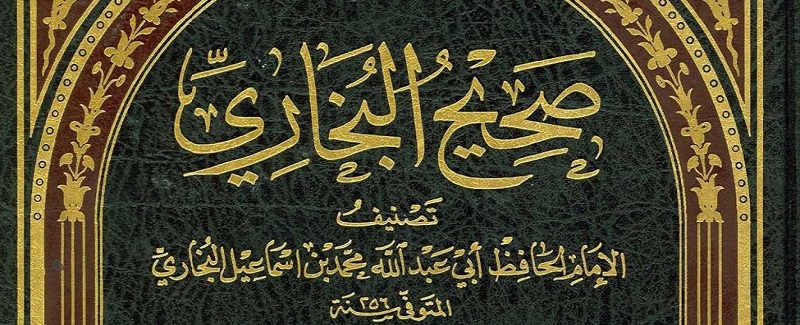 صَحِيحُ البُخَارِيِّ
تَصْنِيفُ
الإِمَامِ الحَافِظِ أَبِي عَبْدِ اللهِ مُحَمَّدِ بْنِ اسْمَاعِيلَ البُخَارِيِّ
المتَوَفّى سَنَة ٢٥٦